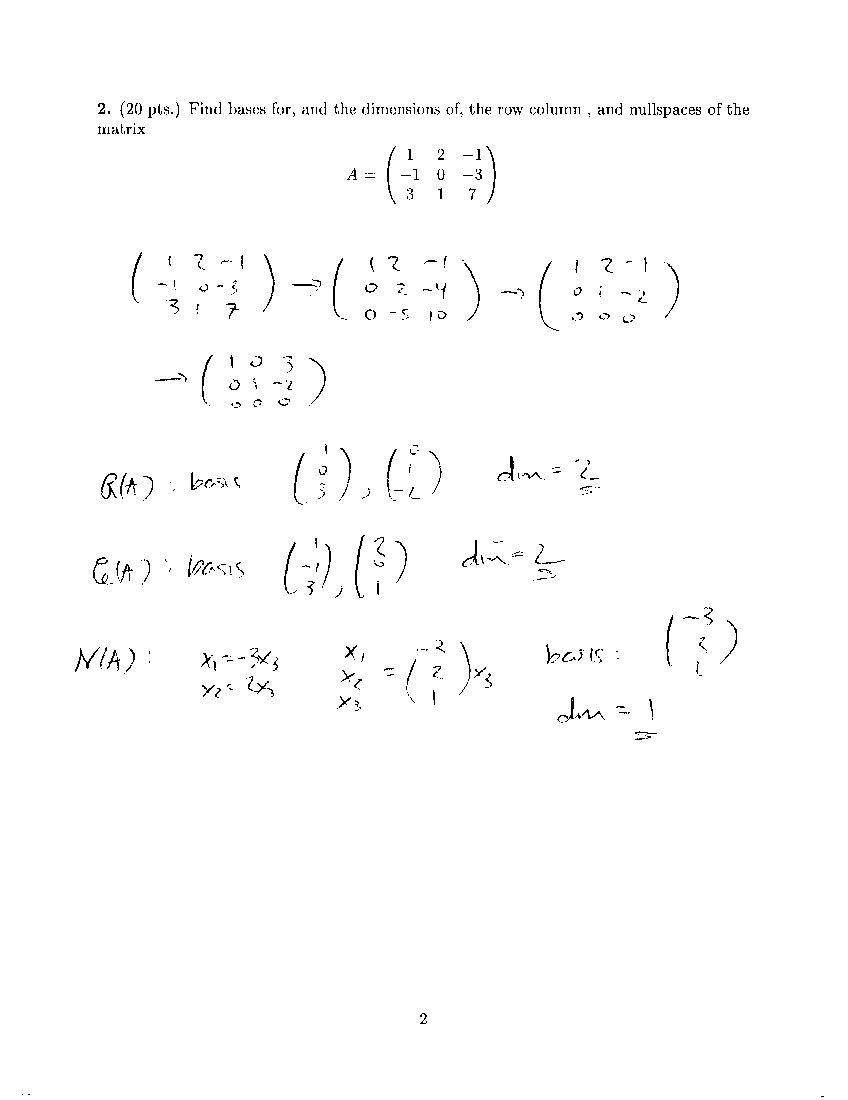 2. (20 pts.) Find bases for, and the dimensions of, the row column , and nullspaces of the
matrix
A = ( 1 2 −1
−1 0 −3
3 1 7 )
( 1 2 -1
-1 0 -3
3 1 7 ) → ( 1 2 -1
0 2 -4
0 -5 10 ) → ( 1 2 -1
0 1 -2
0 0 0 )
→ ( 1 0 3
0 1 -2
0 0 0 )
R(A) : basis ( 1 0 3 ) , ( 0 1 -2 ) dim = 2
C(A) : basis ( 1 -1 3 ) , ( 2 0 1 ) dim = 2
N(A) : x1 = -3x3 x1 x2 x3 = ( -3 2 1 ) x3 basis : ( -3 2 1 )
x2 = 2x3
dim = 1
2